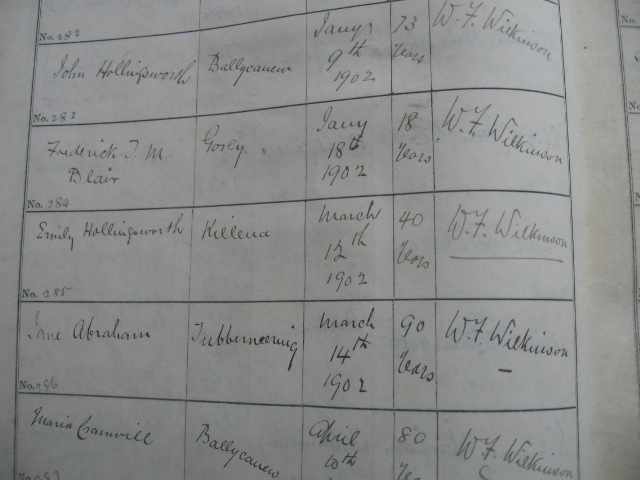 Jany 73 W. F. Wilkinson
No. 282
John Hollingsworth Ballycanew 9th Years
1902
No. 283
Jany 18 W. F. Wilkinson
Frederick T. M Gorey 18th Years
Blair 1902
No. 284
Emily Hollingsworth Killena March 40 W. F. Wilkinson
12th Years
1902
No. 285
Jane Abraham Tubberneering March 90 W. F. Wilkinson
14th Years
1902
No. 286
Maria Cranwill Ballycanew April 80 W. F. Wilkinson
10th
No.